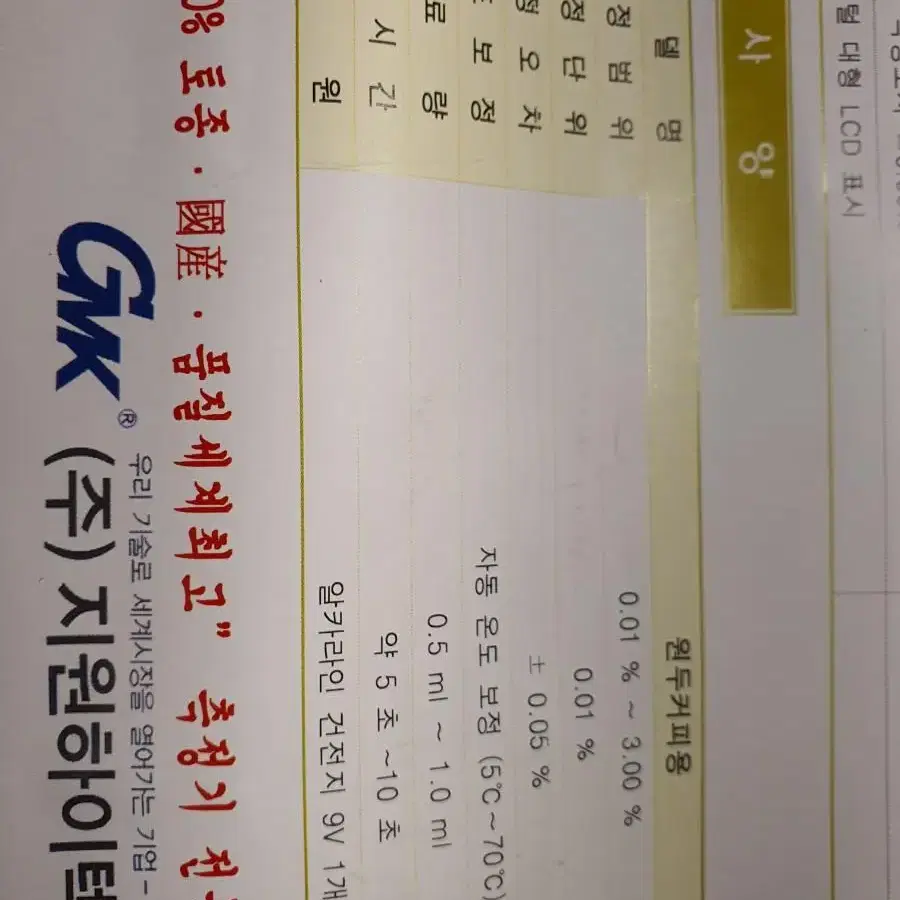 털 대형 LCD 표시
사 양
델 명 원두커피용
정 범 위 0.01 % ~ 3.00 %
정 단 위 0.01 %
정 오 차 ± 0.05 %
보 정 자동 온도 보정 (5℃~70℃)
료 량 0.5 ml ~ 1.0 ml
시 간 약 5 초 ~10 초
원 알카라인 건전지 9V 1개
0% 토종 · 國産 · 품질세계최고” 측정기 전
우리 기술로 세계시장을 열어가는 기업 -
GMK® (주) 지원하이텍